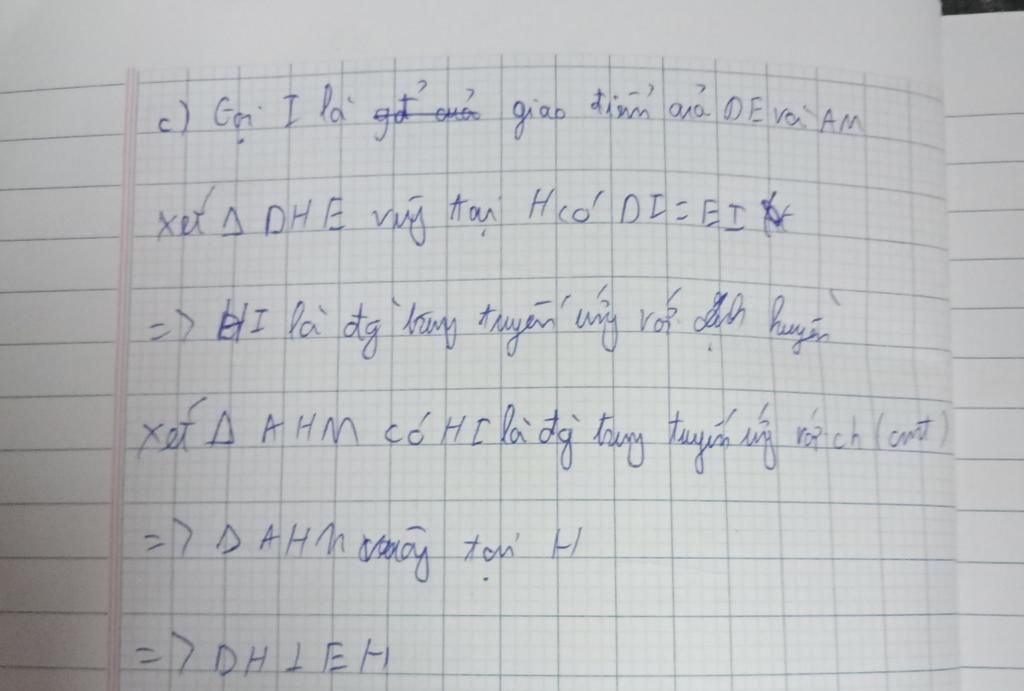 c) Gọi I là giao điểm của DE và AM
xét Δ DHE vuông tại H có DI = EI
=> HI là đg trung tuyến ứng với cạnh huyền
xét Δ AHM có HI là đg trung tuyến ứng với ch (cmt)
=> Δ AHM vuông tại H
=> DH ⊥ EH